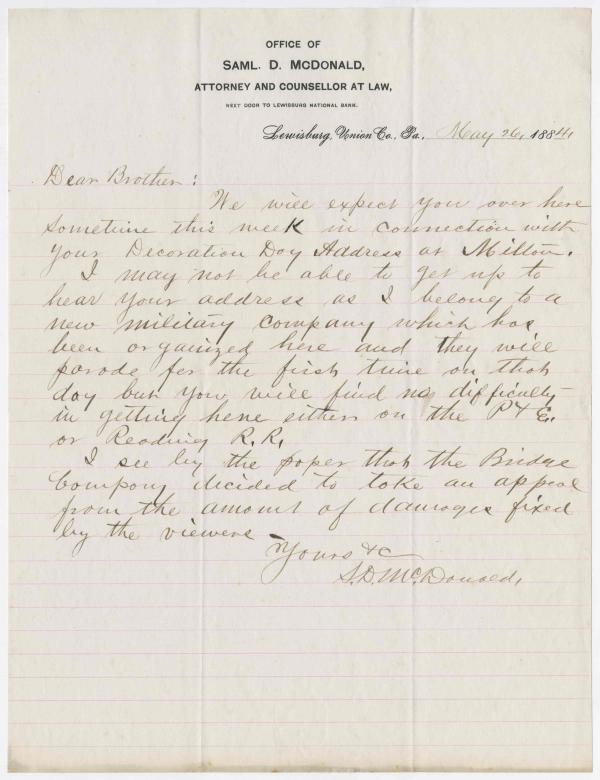 OFFICE OF
SAML. D. McDONALD,
ATTORNEY AND COUNSELLOR AT LAW,
NEXT DOOR TO LEWISBURG NATIONAL BANK.
Lewisburg, Union Co., Pa., May 26, 1884
Dear Brother:
We will expect you over here
sometime this week in connection with
your Decoration Day Address at Milton.
I may not be able to get up to
hear your address as I belong to a
new military company which has
been organized here and they will
parade for the first time on that
day but you will find no difficulty
in getting here either on the P & E.
or Reading R.R.
I see by the paper that the Bridge
Company decided to take an appeal
from the amount of damages fixed
by the viewers
Yours &c
S.D. McDonald,